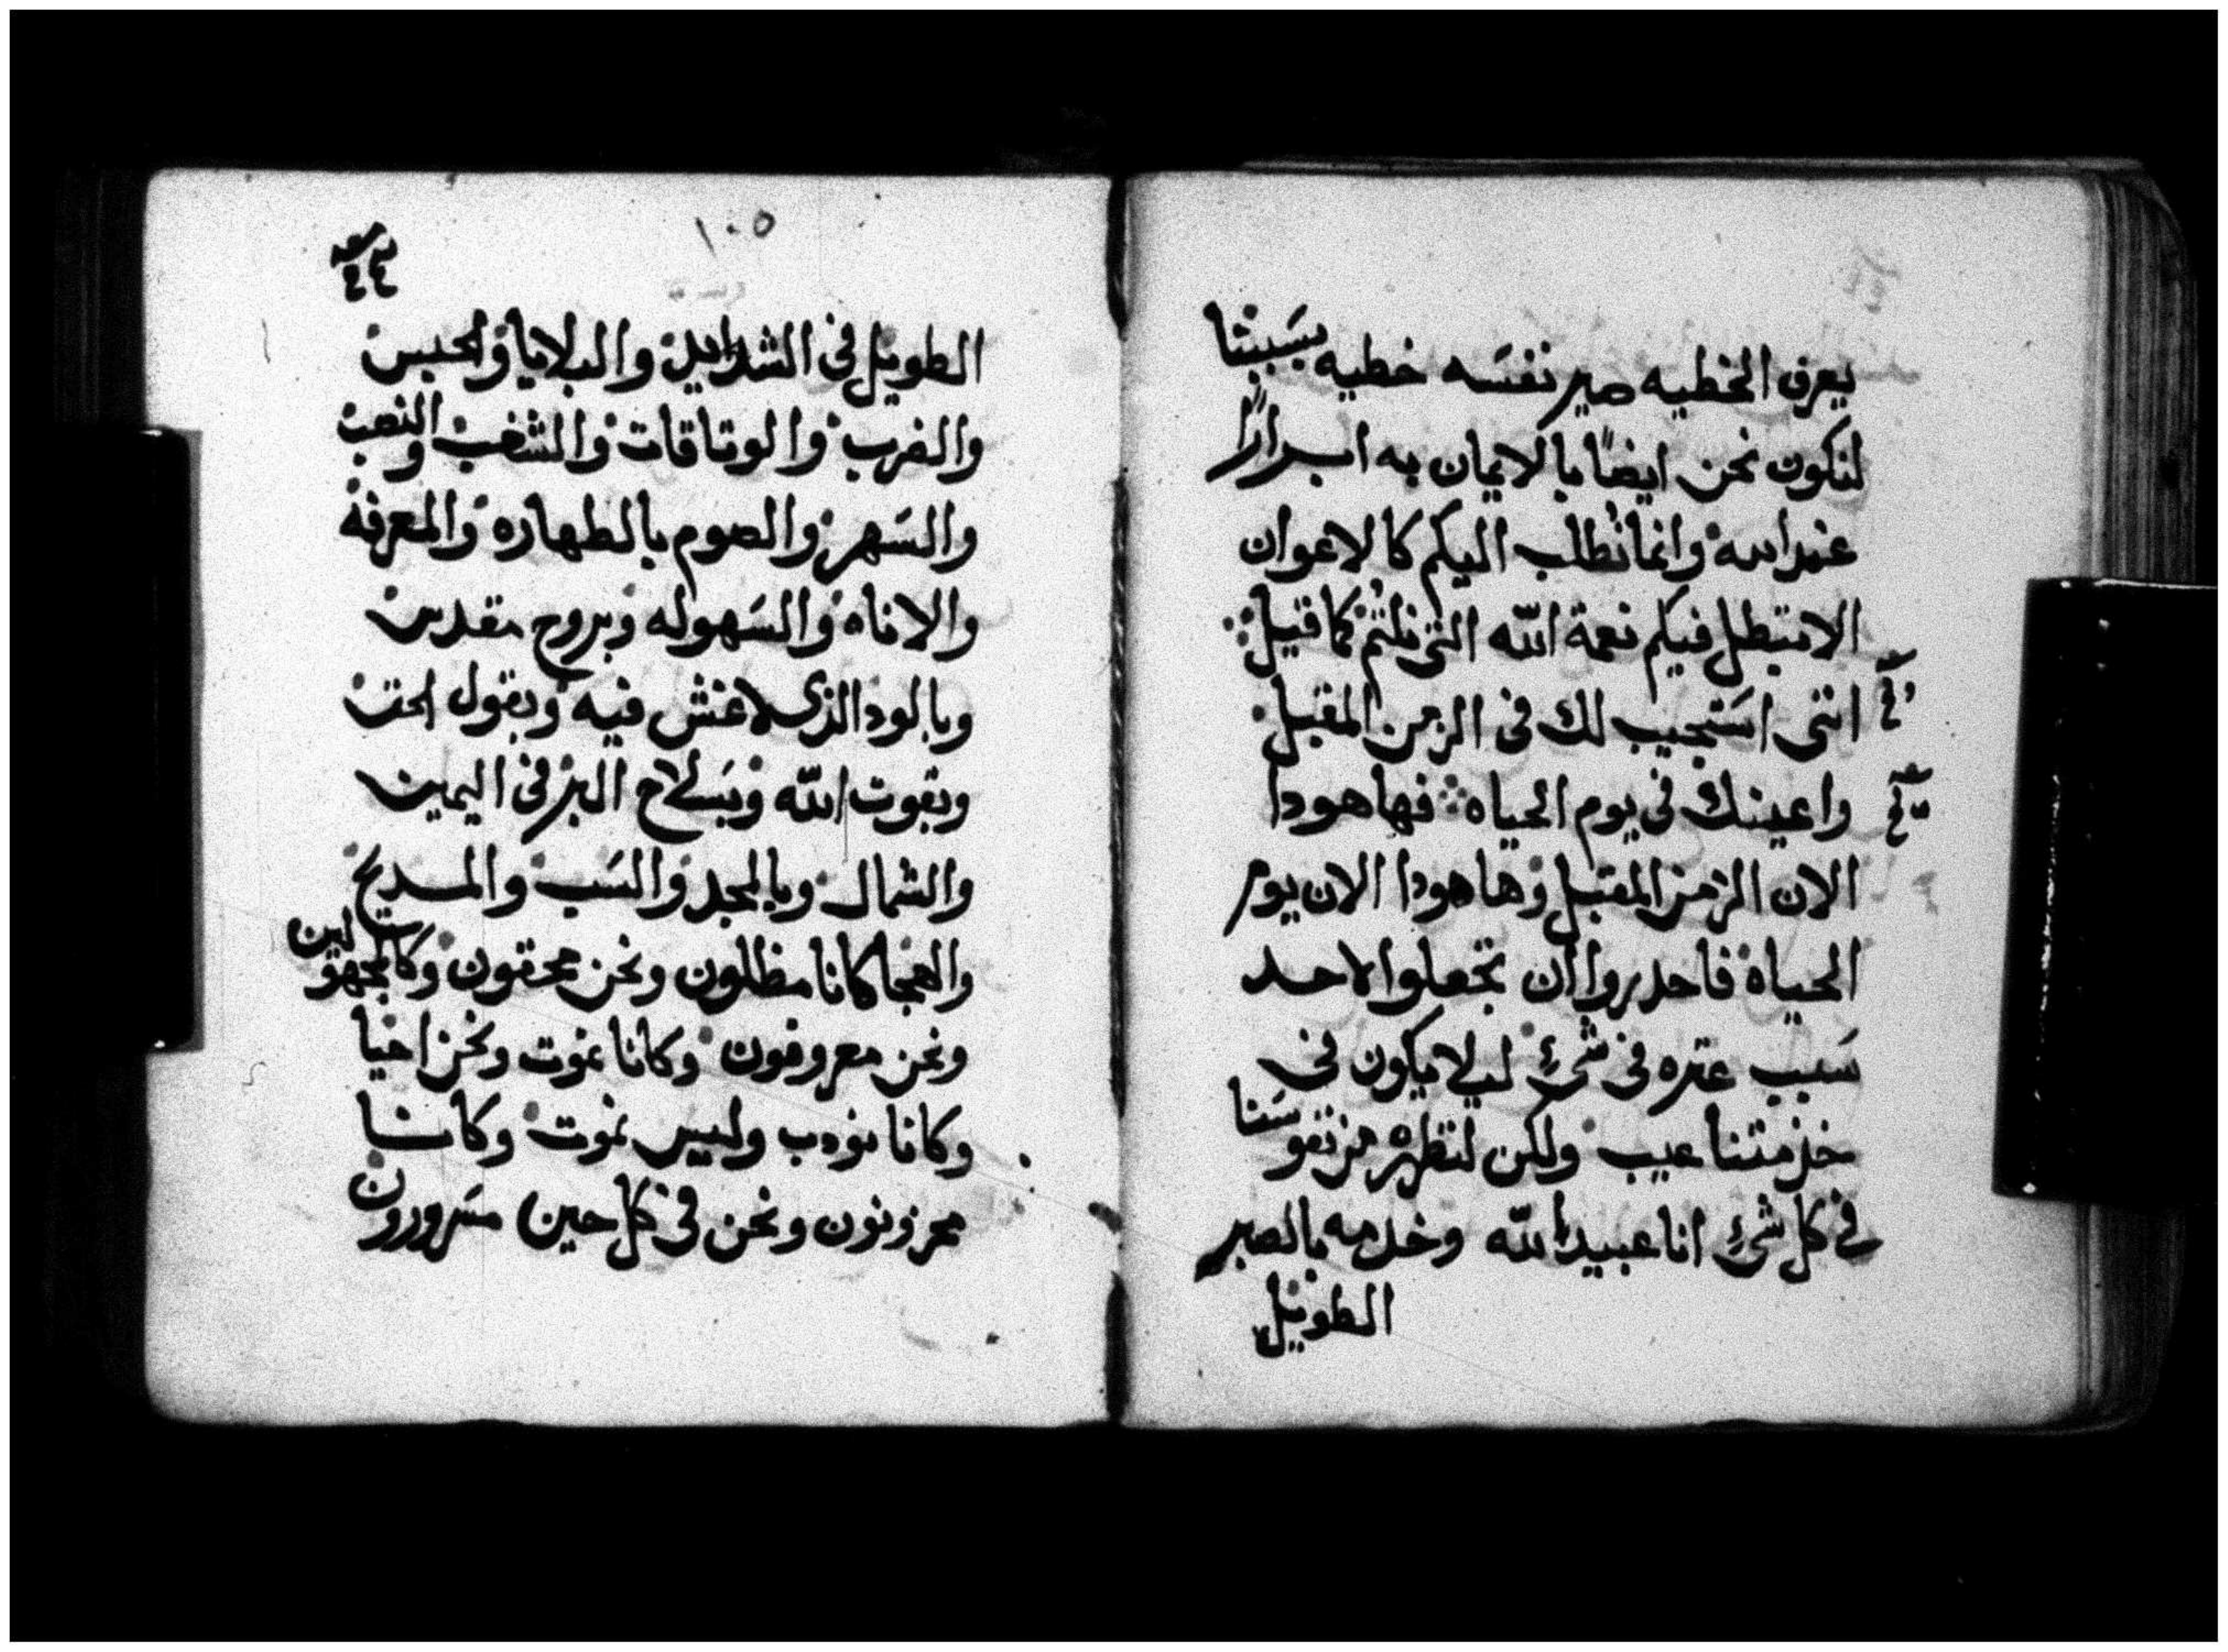 يعرف الخطيه صير نفسه خطيه بسببنا
لنكون نحن ايضاً بالايمان به ابراراً
عند الله وانما نطلب اليكم كالاعوان
الا تبطل فيكم نعمة الله التى نلتم كما قيل
اننى استجيب لك فى الزمن المقبل
واعينك فى يوم الحياه فها هودا
الان الزمن المقبل وها هودا الان يوم
الحياه فاحدروا ان تجعلوا لاحد
سبب عتره فى شىء ليلا يكون فى
خدمتنا عيب ولكن لنظهر من نفوسنا
فى كل شىء انا عبيد الله وخدمه بالصبر
الطويل
١٠٥
الطويل فى الشدايد والبلايا والحبس
والضرب والوتاقات والشغب والنصب
والسهر والصوم بالطهاره والمعرفه
والاناه والسهوله وبروح مقدس
وبالود الذى لا غش فيه وبقول الحق
وبقوت الله وبسلاح البر فى اليمين
والشمال وبالمجد والسب والمديح
والهجا كانا مظلون ونحن محقون وكالمجهولين
ونحن معروفون وكانا نموت ونحن احيا
وكانا نودب وليس نموت وكاننا
محزونون ونحن فى كل حين مسرورون